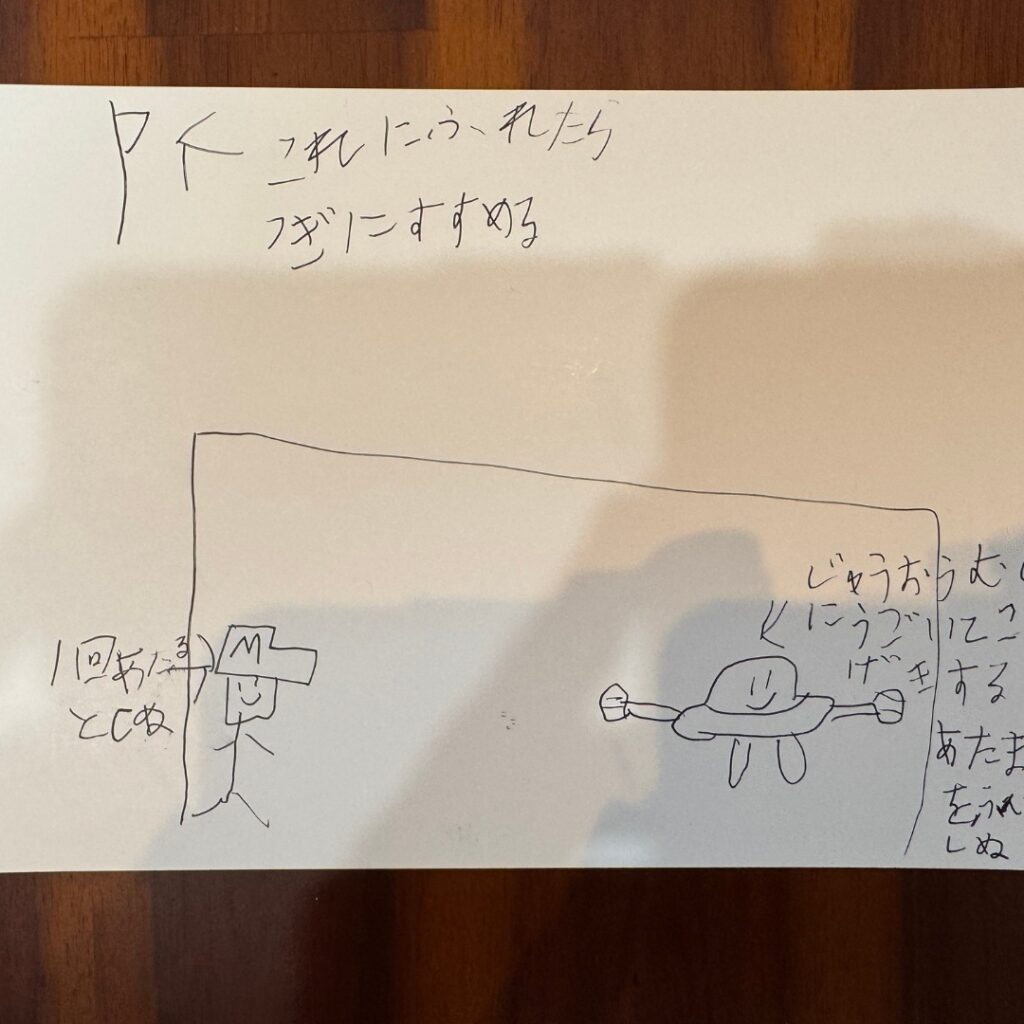 これにふれたら
つぎにすすめる
1回あたる
としぬ
M
じゅうおうむ
にうごいてこ
げきする
あたま
をうれ
しぬ